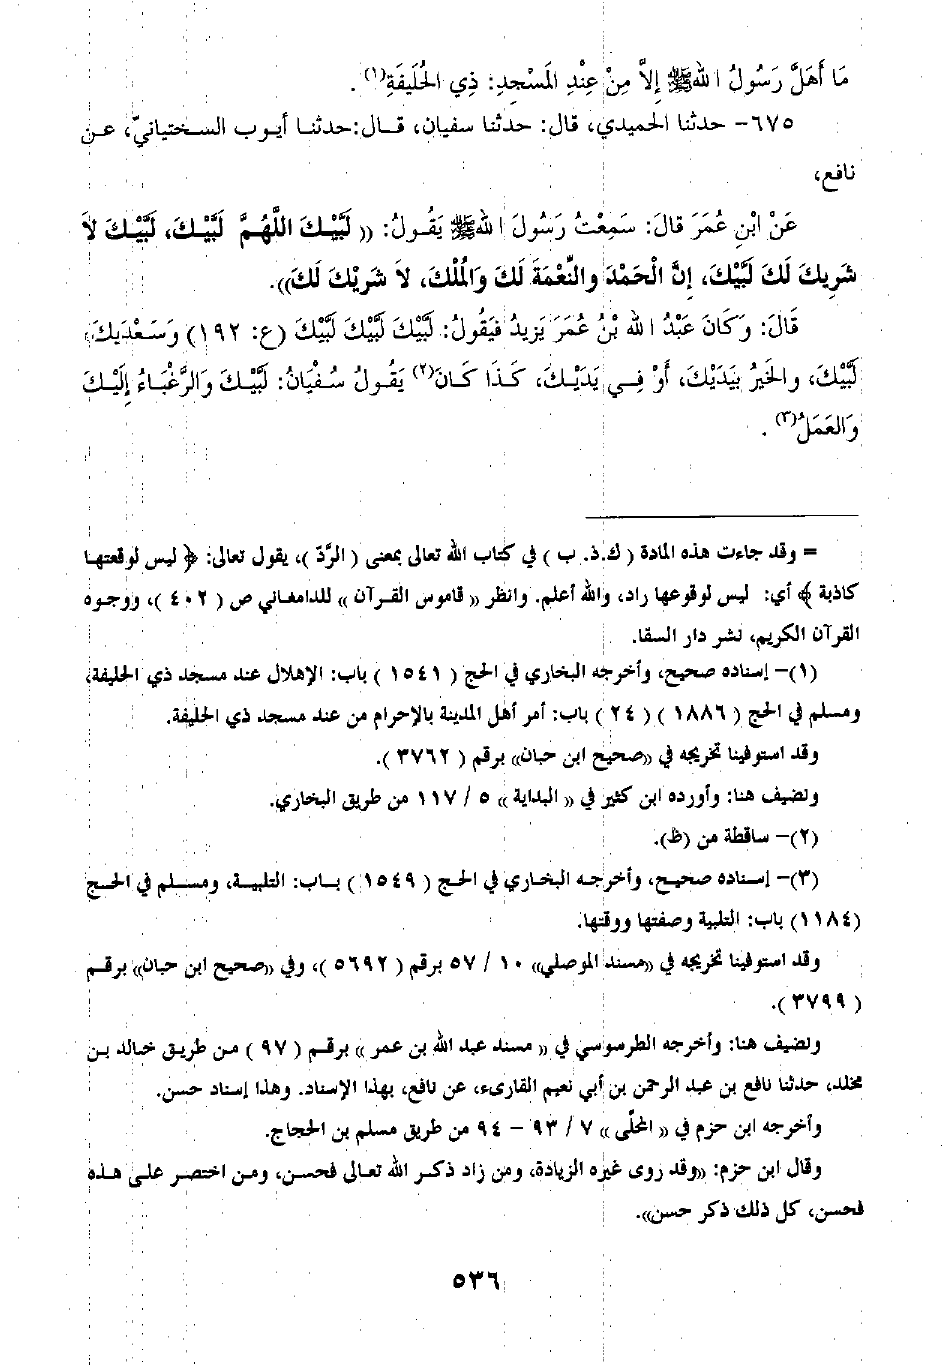 مَا أَهَلَّ رَسُولُ اللهِ ﷺ إِلاَّ مِنْ عِنْدِ المَسْجِدِ: ذِي الحُلَيفَةِ(١).
٦٧٥- حدثنا الحميدي، قال: حدثنا سفيان، قال: حدثنا أيوب السختيانيّ، عن
نافع،
عَنْ ابْنِ عُمَرَ قالَ: سَمِعْتُ رَسُولَ اللهِ ﷺ يَقُولُ: (( لَبَّيْكَ اللَّهُمَّ لَبَّيْكَ، لَبَّيْكَ لاَ
شَرِيكَ لَكَ لَبَّيْكَ، إِنَّ الْحَمْدَ والنِّعْمَةَ لَكَ وَالمُلْكَ، لاَ شَرِيْكَ لَكَ)).
قَالَ: وَكَانَ عَبْدُ اللهِ بْنُ عُمَرَ يَزِيدُ فَيَقُولُ: لَبَّيْكَ لَبَّيْكَ لَبَّيْكَ (ع: ١٩٢) وَسَعْدَيكَ،
لَبَّيْكَ، والخَيرُ بِيَدَيْكَ، أَوْ فِي يَدَيْكَ، كَذَا كَانَ(٢) يَقُولُ سُفْيَانُ: لَبَّيْكَ وَالرَّغْبَاءُ إِلَيْكَ
وَالعَمَلُ(٣).
= وقد جاءت هذه المادة ( ك.ذ. ب ) في كتاب الله تعالى بمعنى ( الرَّدّ )، يقول تعالى: ﴿ ليس لوقعتها
كاذبة ﴾ أي: ليس لوقوعها راد، والله أعلم. وانظر (( قاموس القرآن )) للدامغاني ص ( ٤٠٢ )، ووجوه
القرآن الكريم، نشر دار السقا.
(١)- إسناده صحيح، وأخرجه البخاري في الحج ( ١٥٤١ ) باب: الإهلال عند مسجد ذي الحليفة،
ومسلم في الحج ( ١٨٨٦ ) ( ٢٤ ) باب: أمر أهل المدينة بالإحرام من عند مسجد ذي الحليفة.
وقد استوفينا تخريجه في ((صحيح ابن حبان)) برقم ( ٣٧٦٢ ).
ونضيف هنا: وأورده ابن كثير في (( البداية )) ٥ / ١١٧ من طريق البخاري.
(٢)- ساقطة من (ظ).
(٣)- إسناده صحيح، وأخرجه البخاري في الحج ( ١٥٤٩ ) باب: التلبية، ومسلم في الحج
(١١٨٤) باب: التلبية وصفتها ووقتها.
وقد استوفينا تخريجه في ((مسند الموصلي)) ١٠ / ٥٧ برقم ( ٥٦٩٢ )، وفي ((صحيح ابن حبان)) برقم
( ٣٧٩٩ ).
ونضيف هنا: وأخرجه الطرسوسي في (( مسند عبد الله بن عمر )) برقم ( ٩٧ ) من طريق خالد بن
مخلد، حدثنا نافع بن عبد الرحمن بن أبي نعيم القارىء، عن نافع، بهذا الإسناد. وهذا إسناد حسن.
وأخرجه ابن حزم في (( المحلّى )) ٧ / ٩٣ – ٩٤ من طريق مسلم بن الحجاج.
وقال ابن حزم: ((وقد روى غيره الزيادة، ومن زاد ذكر الله تعالى فحسن، ومن اختصر على هذه
فحسن، كل ذلك ذكر حسن)).
٥٣٦